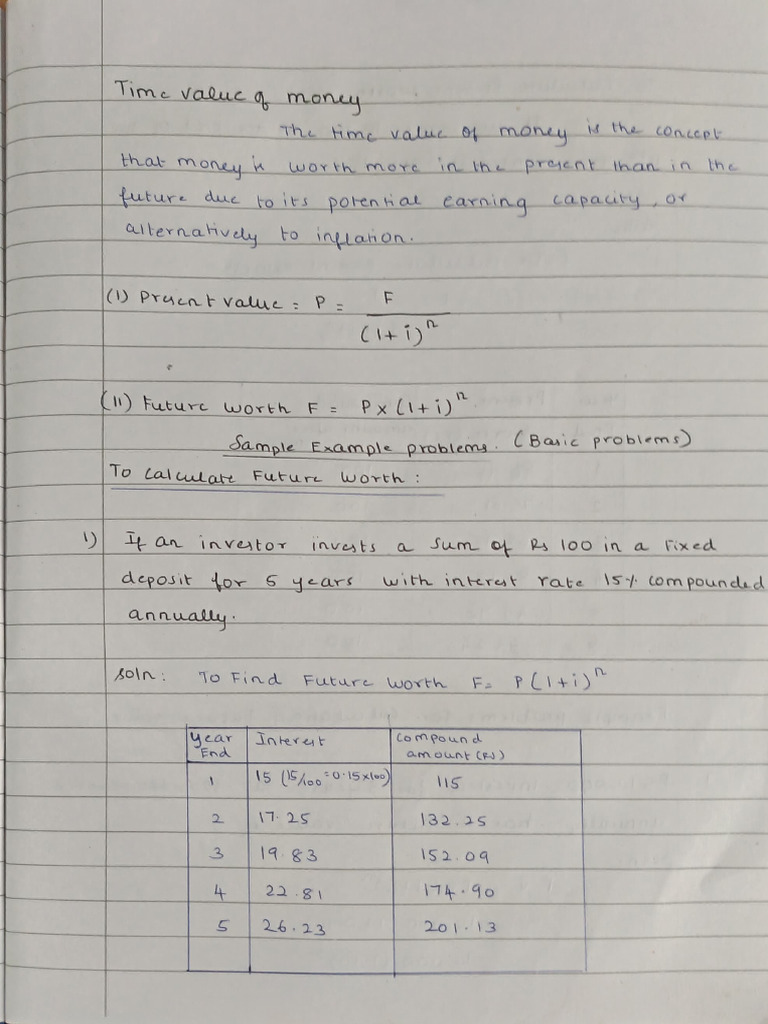 Time value of money
The time value of money is the concept
that money is worth more in the present than in the
future due to its potential earning capacity, or
alternatively to inflation.
(I) Present value = P = F
(1+i)^n
(II) Future worth F = P x (1+i)^n
Sample Example problems. (Basic problems)
To calculate Future Worth :
1) If an investor invests a sum of Rs 100 in a Fixed
deposit for 5 years with interest rate 15% compounded
annually.
Soln : To Find Future Worth F = P(1+i)^n
Year End Interest Compound amount (Rs)
1 15 (15/100 = 0.15x100) 115
2 17.25 132.25
3 19.83 152.09
4 22.81 174.90
5 26.23 201.13